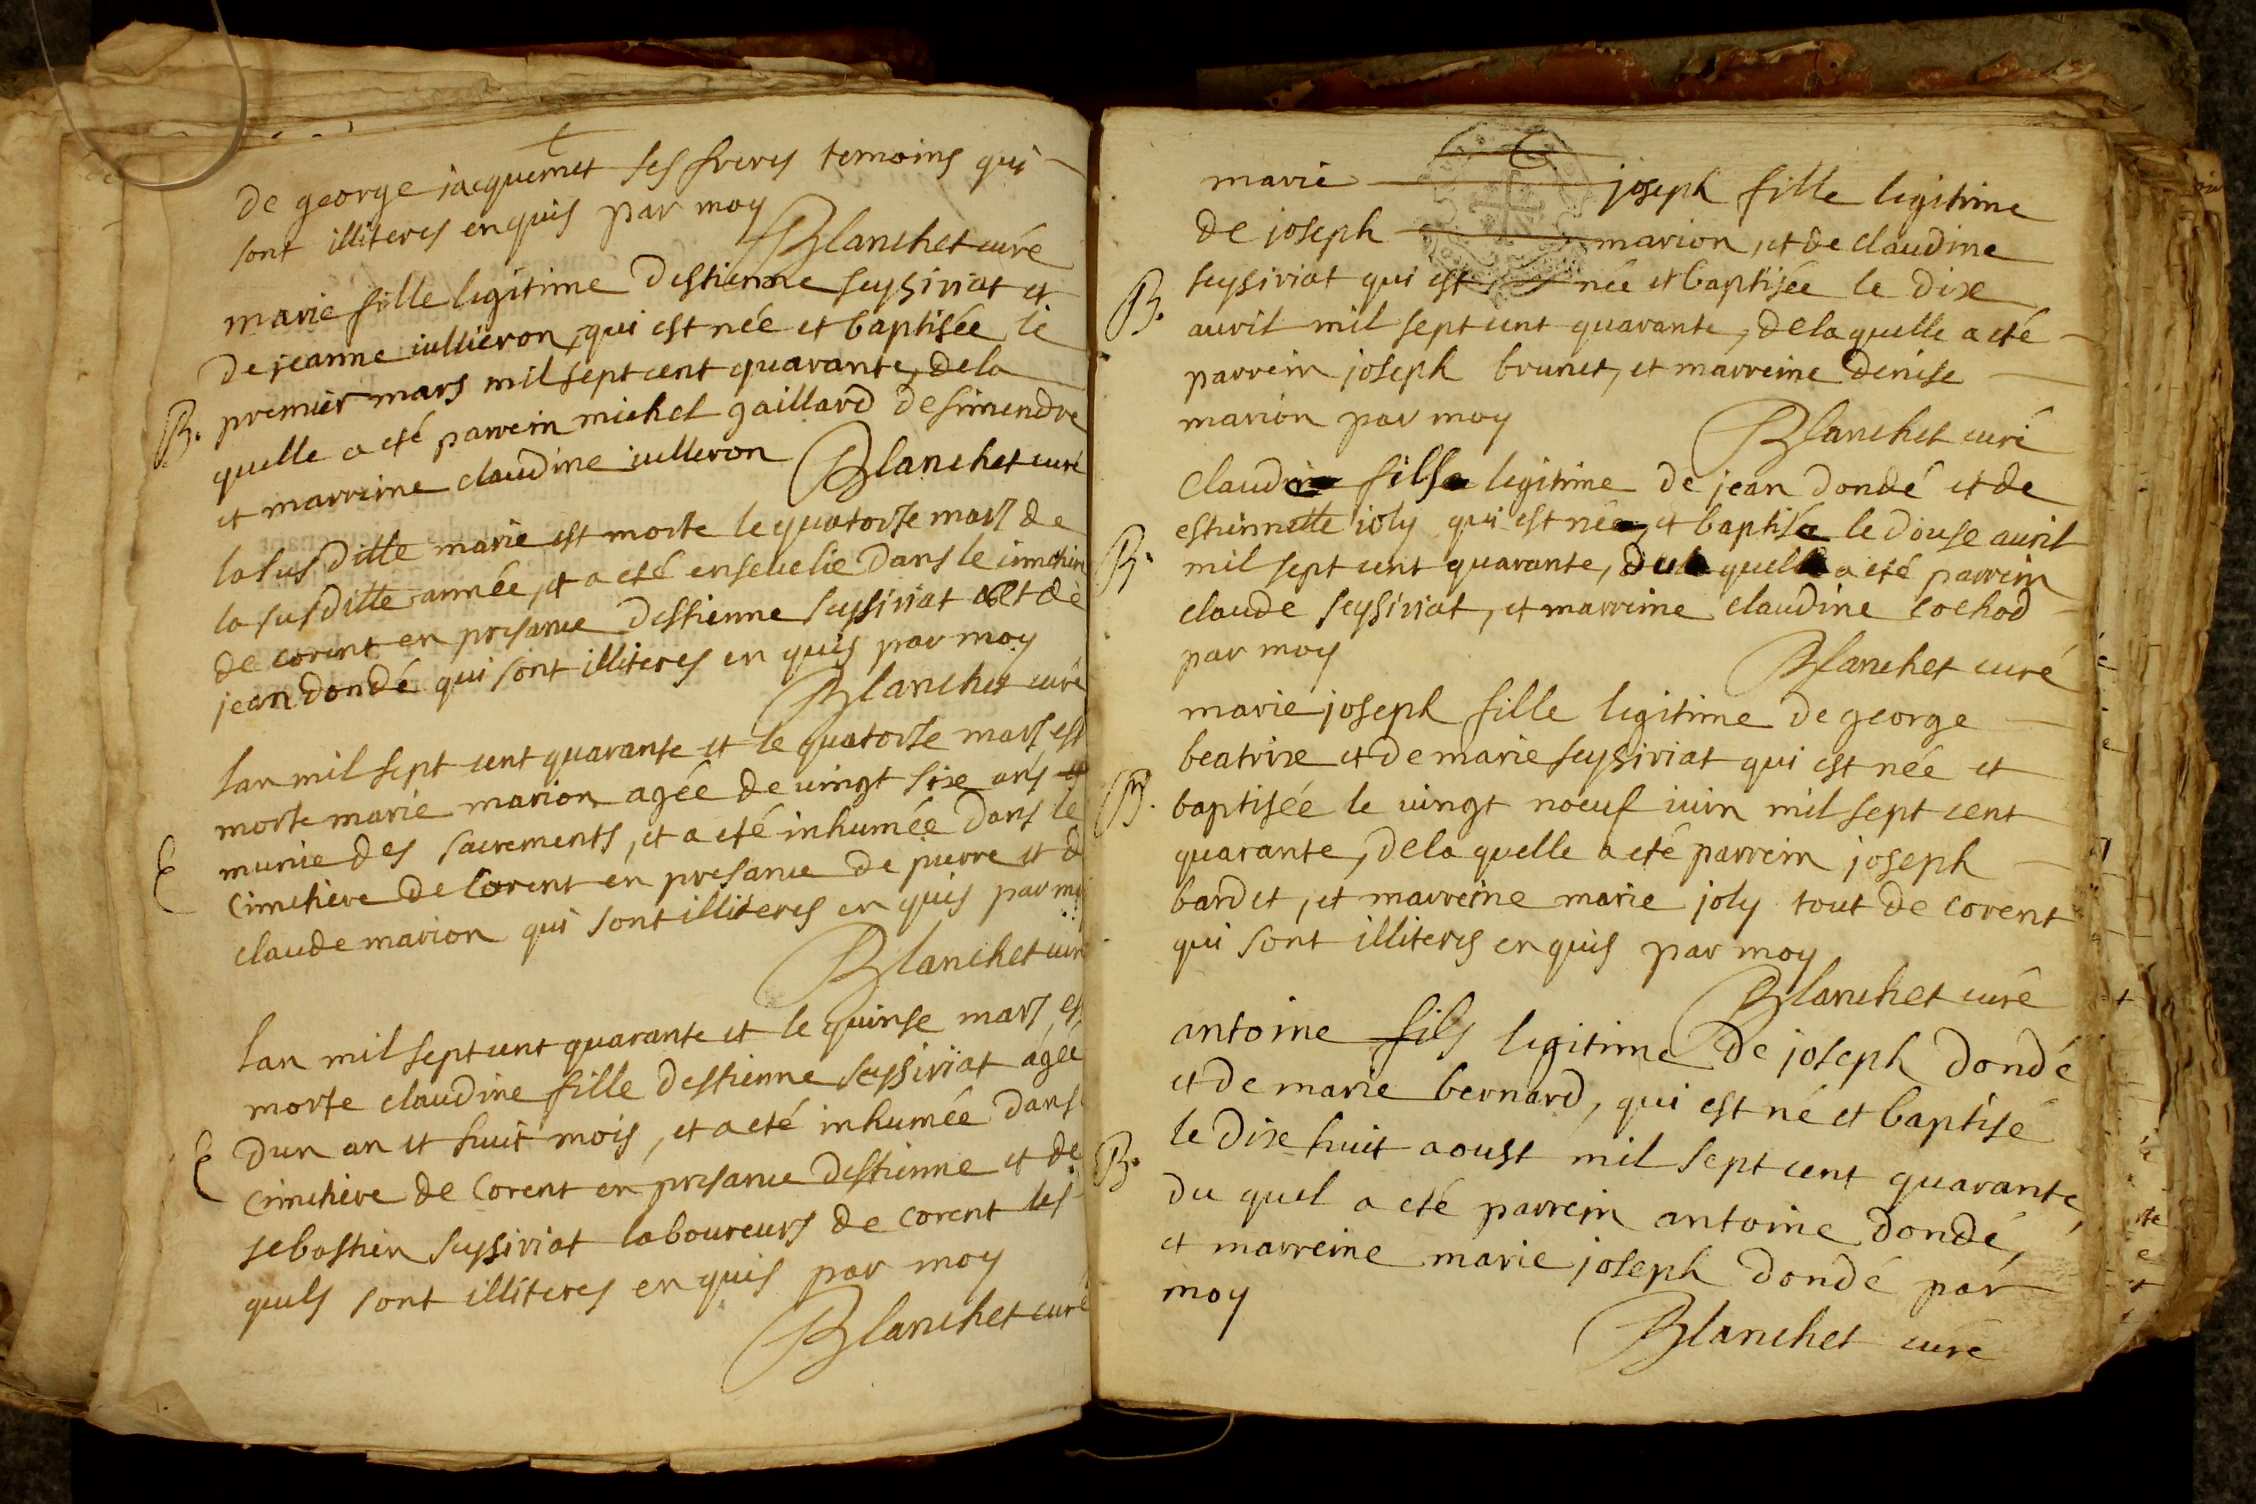 de george jacquemet ses freres temoins qui
sont illiteres enquis par moy
Blanchet curé
marie fille legitime destienne seysiriat et
de jeanne iullieron, qui est née et baptisée le
B. premier mars mil sept cent quarante, de la
quelle a eté parrein michel gaillard de simendre
et marreine claudine iulleron Blanchet curé
la susditte marie est morte le quatorse mars de
la susditte année, et a eté ensevelie dans le
de corent en presance destienne seysiriat et de
jean dondé qui sont illiteres enquis par moy
Blanchet curé
lan mil sept cent quarante et le quatorse mars est
morte marie marion agée de vingt sixe ans
munie des sacrements, et a eté inhumée dans le
cimetiere de Corent en presance de pierre et d
claude marion qui sont illiteres enquis par
Blanchet
lan mil sept cent quarante et le quinse mars
morte claudine fille destienne seysiriat agée
dun an et huit mois, et a eté inhumée dans
cimetiere de Corent en presance destienne et de
sebastien seysiriat laboureurs de corent les
quels sont illiteres enquis par moy
Blanchet curé
marie joseph fille legitime
de joseph marion, et de claudine
seysiriat qui est née et baptisée le dixe
B. avril mil sept cent quarante, de la quelle a eté
parrein joseph brunet, et marreine denise
marion par moy
Blanchet curé
fils legitime de jean dondé et de
estiennette ioly qui est né et baptisé le douse avril
B. mil sept cent quarante, a eté parrein
claude seysiriat, et marreine claudine cochod
par moy
Blanchet curé
marie joseph fille legitime de george
beatrixe et de marie seysiriat qui est née et
B. baptisée le vingt noeuf iuin mil sept cent
quarante, de la quelle a eté parrein joseph
bardet, et marreine marie joly tout de corent
qui sont illiteres enquis par moy
Blanchet curé
antoine fils legitime de joseph dondé
et de marie bernard, qui est né et baptisé
B. le dixe huit aoust mil sept cent quarante,
du quel a eté parrein antoine dondé,
et marreine marie joseph dondé par
moy
Blanchet curé